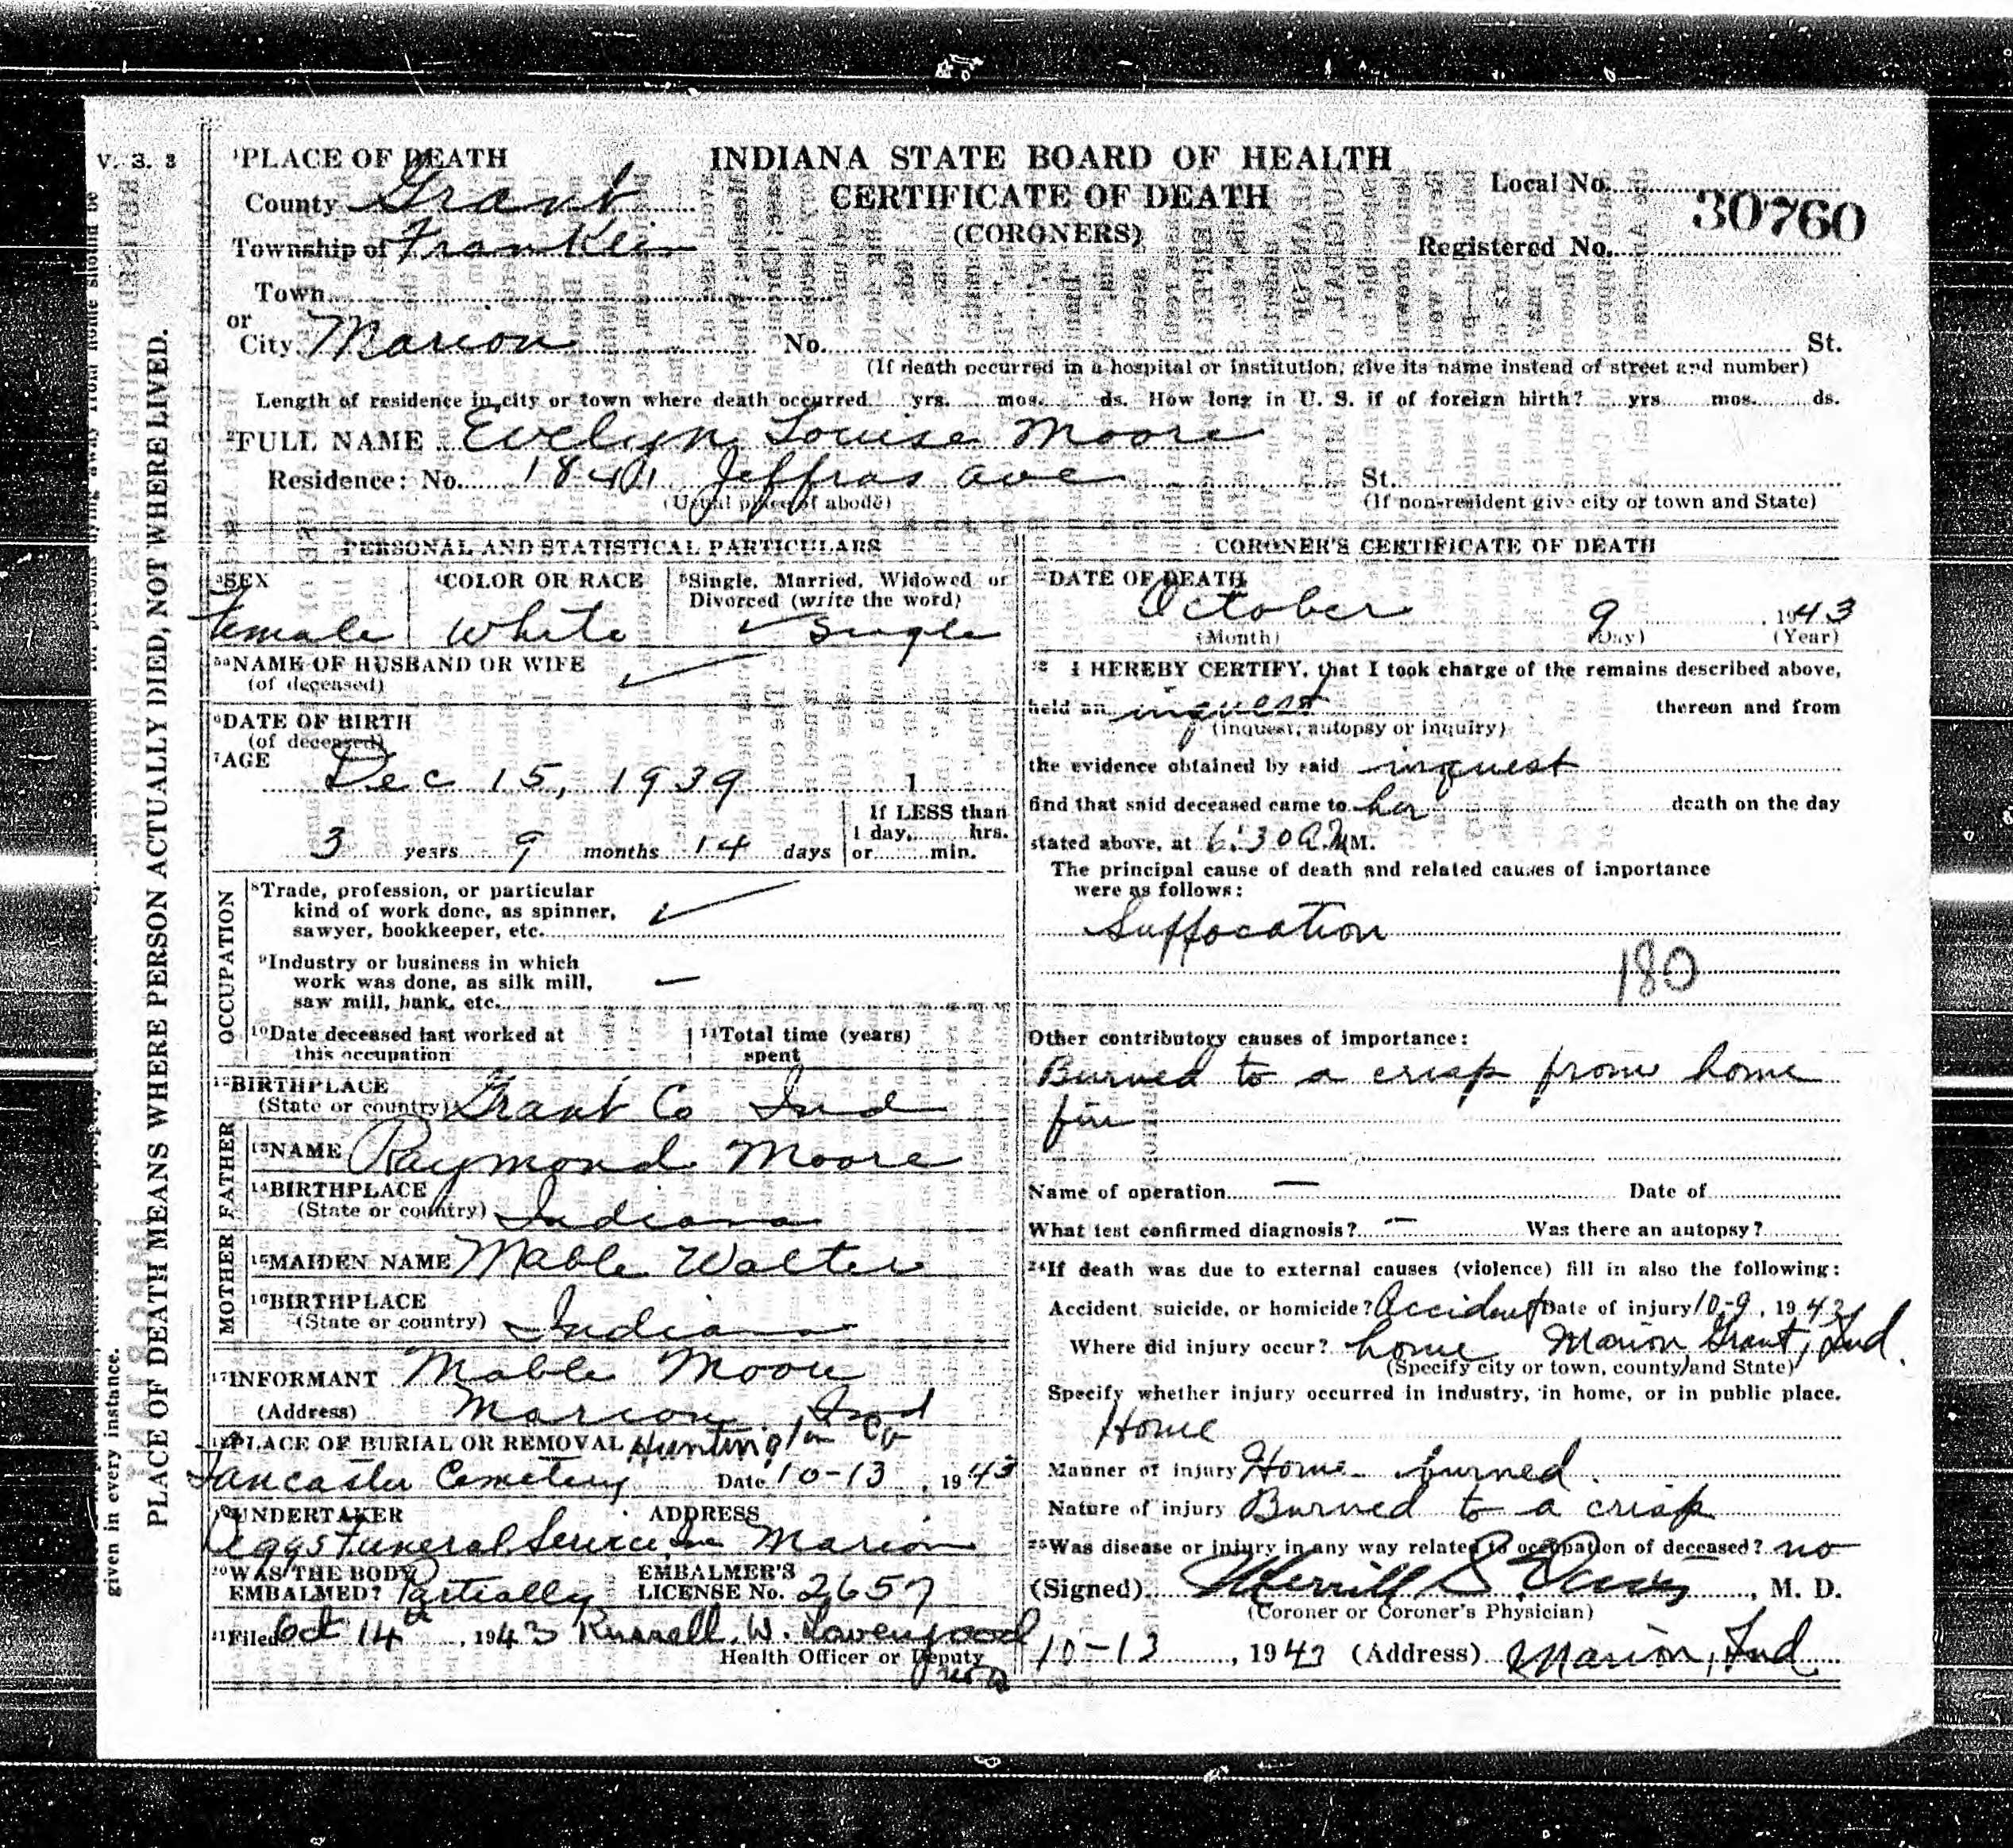 V. S. 3
¹PLACE OF DEATH
County Grant
Township of Franklin
Town
or
City Marion No. St.
INDIANA STATE BOARD OF HEALTH
CERTIFICATE OF DEATH
(CORONERS)
Local No.
30760
Registered No.
(If death occurred in a hospital or institution, give its name instead of street and number)
Length of residence in city or town where death occurred yrs. mos. ds. How long in U. S. if of foreign birth? yrs mos. ds.
²FULL NAME Evelyn Louise Moore
Residence: No. 1841 Jeffras Ave St.
(Usual place of abode) (If non-resident give city or town and State)
PERSONAL AND STATISTICAL PARTICULARS
³SEX ⁴COLOR OR RACE ⁵Single, Married, Widowed or
Divorced (write the word)
Female White ✓ Single
⁵ᵃNAME OF HUSBAND OR WIFE
(of deceased) ✓
⁶DATE OF BIRTH
(of deceased)
⁷AGE
Dec 15, 1939 1
3 years 9 months 14 days
If LESS than
1 day, hrs.
or min.
OCCUPATION
⁸Trade, profession, or particular
kind of work done, as spinner,
sawyer, bookkeeper, etc. ✓
⁹Industry or business in which
work was done, as silk mill,
saw mill, bank, etc. —
¹⁰Date deceased last worked at
this occupation
¹¹Total time (years)
spent
¹²BIRTHPLACE
(State or country) Grant Co Ind
FATHER
¹³NAME Raymond Moore
¹⁴BIRTHPLACE
(State or country) Indiana
MOTHER
¹⁵MAIDEN NAME Mable Walter
¹⁶BIRTHPLACE
(State or country) Indiana
¹⁷INFORMANT Mable Moore
(Address) Marion Ind
¹⁸PLACE OF BURIAL OR REMOVAL Huntington Co
Lancaster Cemetery Date 10-13, 1943
¹⁹UNDERTAKER ADDRESS
Diggs Funeral Service Inc Marion
²⁰WAS THE BODY
EMBALMED? Partially
EMBALMER'S
LICENSE No. 2657
²¹Filed Oct 14th, 1943 Russell W. Lavengood
Health Officer or Deputy
CORONER'S CERTIFICATE OF DEATH
²²DATE OF DEATH
October 9, 1943
(Month) (Day) (Year)
²³ I HEREBY CERTIFY, that I took charge of the remains described above,
held an inquest thereon and from
(inquest, autopsy or inquiry)
the evidence obtained by said inquest
find that said deceased came to her death on the day
stated above, at 6:30 A.M M.
The principal cause of death and related causes of importance
were as follows:
Suffocation
180
Other contributory causes of importance:
Burned to a crisp from home
fire
Name of operation — Date of
What test confirmed diagnosis? — Was there an autopsy?
²⁴If death was due to external causes (violence) fill in also the following:
Accident, suicide, or homicide? Accident Date of injury 10-9, 1943
Where did injury occur? home Marion Grant, Ind.
(Specify city or town, county and State)
Specify whether injury occurred in industry, in home, or in public place.
Home
Manner of injury Home burned.
Nature of injury Burned to a crisp
²⁵Was disease or injury in any way related to occupation of deceased? no
(Signed) Merrill S. Davis, M. D.
(Coroner or Coroner's Physician)
10-13, 1943 (Address) Marion, Ind
given in every instance.
PLACE OF DEATH MEANS WHERE PERSON ACTUALLY DIED, NOT WHERE LIVED.